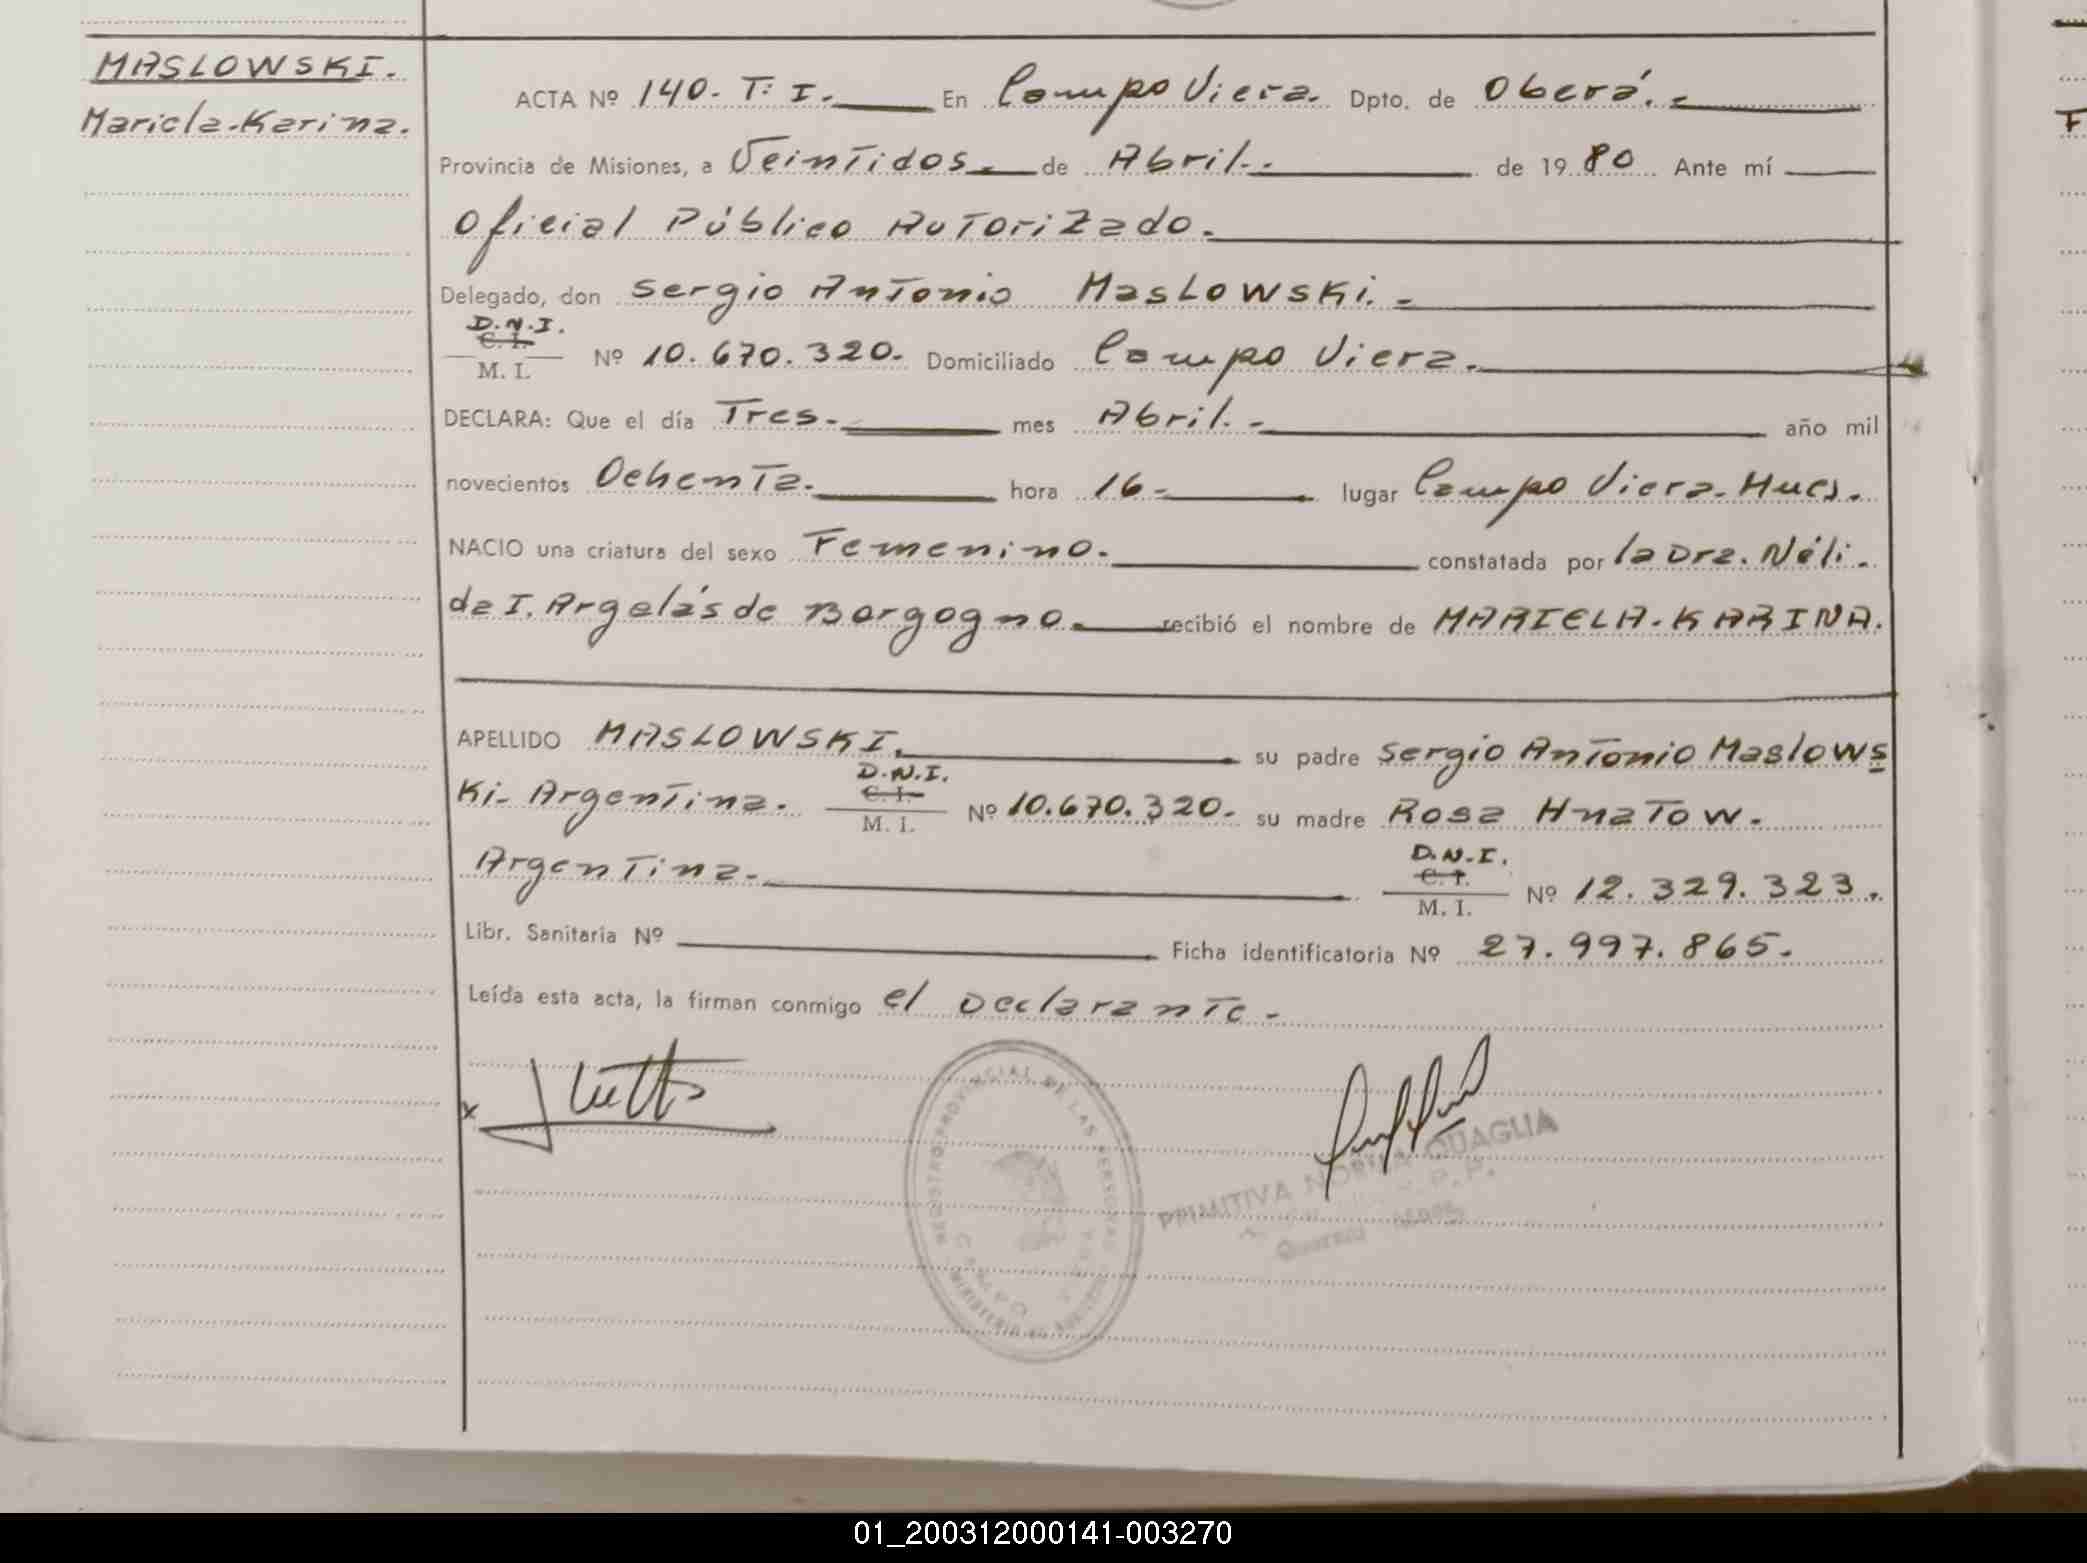 MASLOWSKI.
Mariela-Karina.
ACTA Nº 140. T: I. En Campo Viera. Dpto. de Oberá.
Provincia de Misiones, a Veintidos. de Abril. de 1980 Ante mí
Oficial Público Autorizado.
Delegado, don Sergio Antonio Maslowski.
D.N.I.
C. I.
M. I. Nº 10.670.320. Domiciliado Campo Viera.
DECLARA: Que el día Tres. mes Abril. año mil
novecientos Ochenta. hora 16- lugar Campo Viera. Mnes.
NACIO una criatura del sexo Femenino. constatada por la Dra. Néli-
da I. Argelás de Borgogno. recibió el nombre de MARIELA-KARINA.
APELLIDO MASLOWSKI. su padre Sergio Antonio Maslows
D.N.I.
C. I.
ki- Argentina. M. I. Nº 10.670.320. su madre Rosa Hnatow.
D.N.I.
C. I.
Argentina. M. I. Nº 12.329.323.
Libr. Sanitaria Nº Ficha identificatoria Nº 27.997.865.
Leída esta acta, la firman conmigo el Declarante.
x
REGISTRO PROVINCIAL DE LAS PERSONAS
CAMPO VIERA
PRIMITIVA NORMA QUAGLIA
01_200312000141-003270